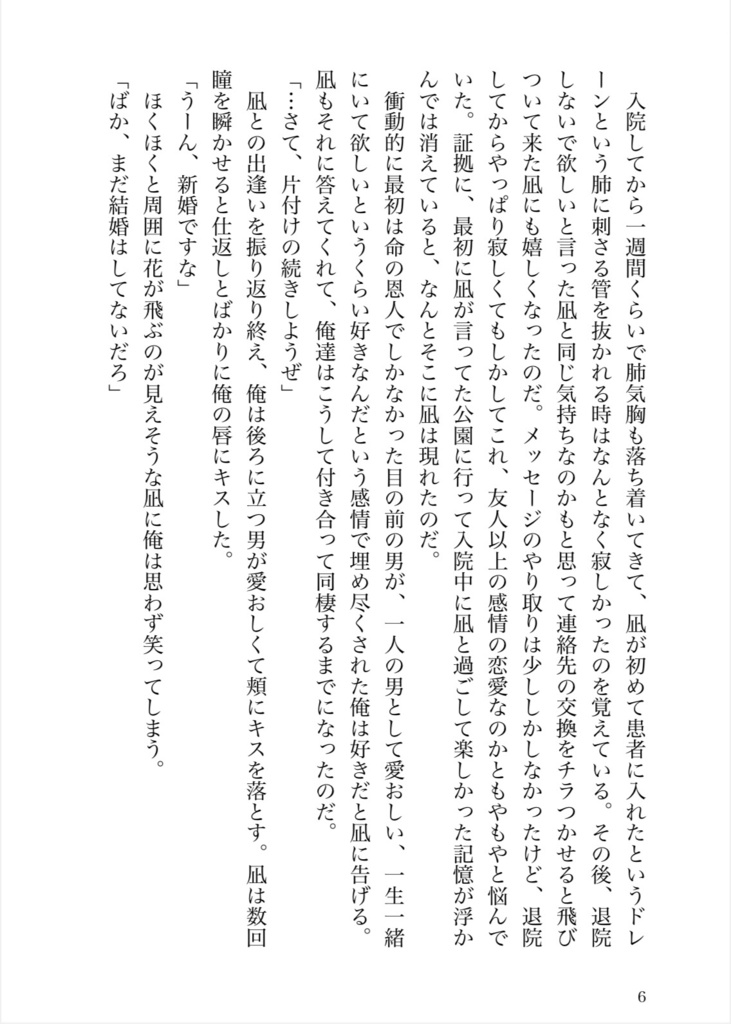 入院してから一週間くらいで肺気胸も落ち着いてきて、凪が初めて患者に入れたというドレ
ーンという肺に刺さる管を抜かれる時はなんとなく寂しかったのを覚えている。その後、退院
しないで欲しいと言った凪と同じ気持ちなのかもと思って連絡先の交換をチラつかせると飛び
ついて来た凪にも嬉しくなったのだ。メッセージのやり取りは少ししかしなかったけど、退院
してからやっぱり寂しくてもしかしてこれ、友人以上の感情の恋愛なのかともやもやと悩んで
いた。証拠に、最初に凪が言ってた公園に行って入院中に凪と過ごして楽しかった記憶が浮か
んでは消えていると、なんとそこに凪は現れたのだ。
　衝動的に最初は命の恩人でしかなかった目の前の男が、一人の男として愛おしい、一生一緒
にいて欲しいというくらい好きなんだという感情で埋め尽くされた俺は好きだと凪に告げる。
凪もそれに答えてくれて、俺達はこうして付き合って同棲するまでになったのだ。
「…さて、片付けの続きしようぜ」
　凪との出逢いを振り返り終え、俺は後ろに立つ男が愛おしくて頬にキスを落とす。凪は数回
瞳を瞬かせると仕返しとばかりに俺の唇にキスした。
「うーん、新婚ですな」
　ほくほくと周囲に花が飛ぶのが見えそうな凪に俺は思わず笑ってしまう。
「ばか、まだ結婚はしてないだろ」
6